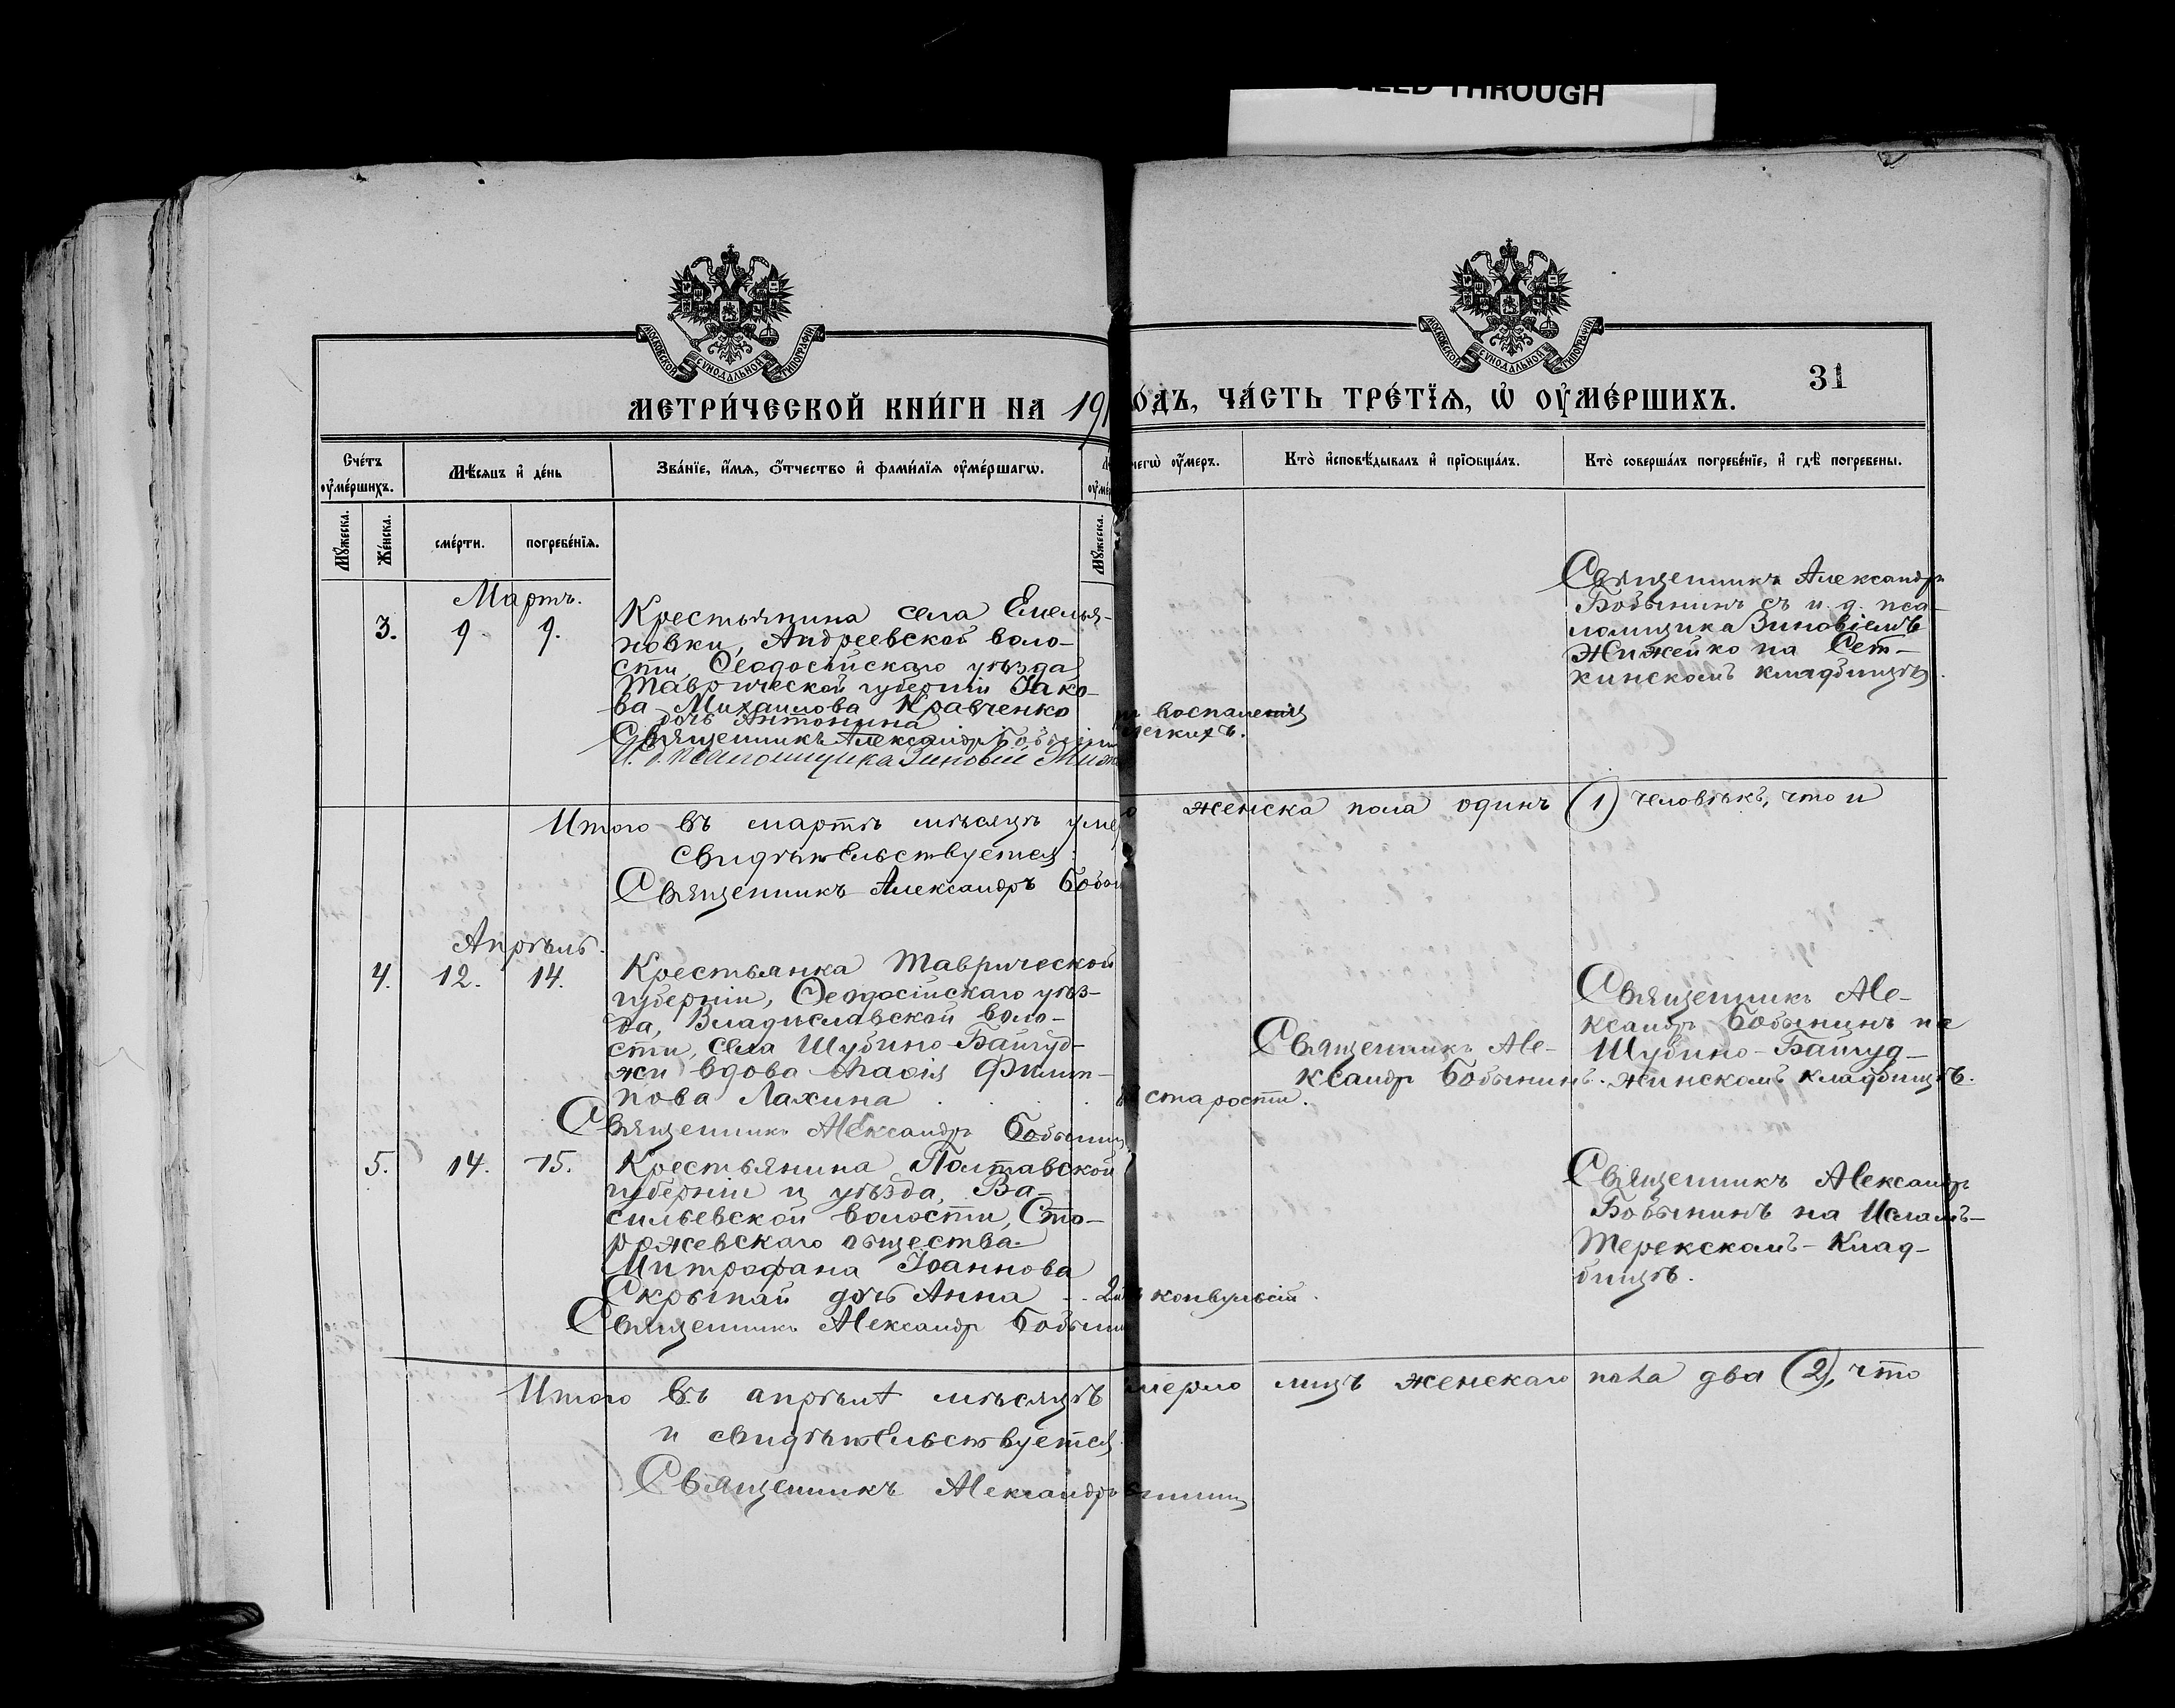 THROUGH
МОСКОВСКОЙ СУНОДАЛЬНОЙ ТИПОГРАФІИ
МОСКОВСКОЙ СУНОДАЛЬНОЙ ТИПОГРАФІИ
31
МЕТРИ́ЧЕСКОЙ КНИ́ГИ НА 191
ОДЪ, ЧА́СТЬ ТРЕ́ТЇѦ, Ѡ҆ ОУ҆МЕ́РШИХЪ.
Сче́тъ оу҆ме́ршихъ.
Мѣ́сяцъ и҆ де́нь
Зва́нїе, и҆́мя, ѻ҆́тчество и҆ фами́лїя оу҆ме́ршагѡ.
чегѡ̀ оу҆́меръ.
Кто̀ и҆сповѣ́дывалъ и҆ прїѻбща́лъ.
Кто̀ соверша́лъ погребе́нїе, и҆ гдѣ̀ погребены.
Мꙋ́жеска.
Же́нска.
сме́рти.
погребе́нїя.
Мꙋ́жеска.
Мартъ.
3. 9. 9.
Крестьянина села Емелья-
новки, Андреевской воло-
сти, Ѳеодосійскаго уѣзда
Таврической губерніи Іако-
ва Михаилова Кравченко
дочь Антонина
Священникъ Александръ Бобынин
И. д. псаломщика Зиновій Жиж
воспаленія
легкихъ.
Священникъ Александръ
Бобынинъ съ и. д. пса-
ломщика Зиновіемъ
Жижейко на Сет-
кинскомъ кладбищѣ.
Итого въ мартѣ мѣсяцѣ умер
о женска пола одинъ (1) человѣкъ, что и
свидѣтельствуется:
Священникъ Александръ Бобын
Апрѣль.
4. 12. 14.
Крестьянка Таврической
губерніи, Ѳеодосійскаго уѣз-
да, Владиславской воло-
сти, села Шубино-Байгуд-
жи вдова Марія Филип-
пова Лахина
Священникъ Александръ Бобынин
старости.
Священникъ Але-
ксандр Бобынинъ.
Священникъ Але-
ксандръ Бобынинъ на
Шубино-Байгуд-
жинскомъ кладбищѣ.
5. 14. 15.
Крестьянина Полтавской
губерніи и уѣзда, Ва-
сильевской волости, Сто-
рожевскаго общества
Митрофана Іоаннова
Скрыпай дочь Анна
Священникъ Александр Бобынин
конвульсій.
Священникъ Александръ
Бобынинъ на Исламъ-
Терекскомъ-клад-
бищѣ.
Итого въ апрѣлѣ мѣсяцѣ
мерло лицъ женскаго пола два (2), что
и свидѣтельствуется
Священникъ Александръ